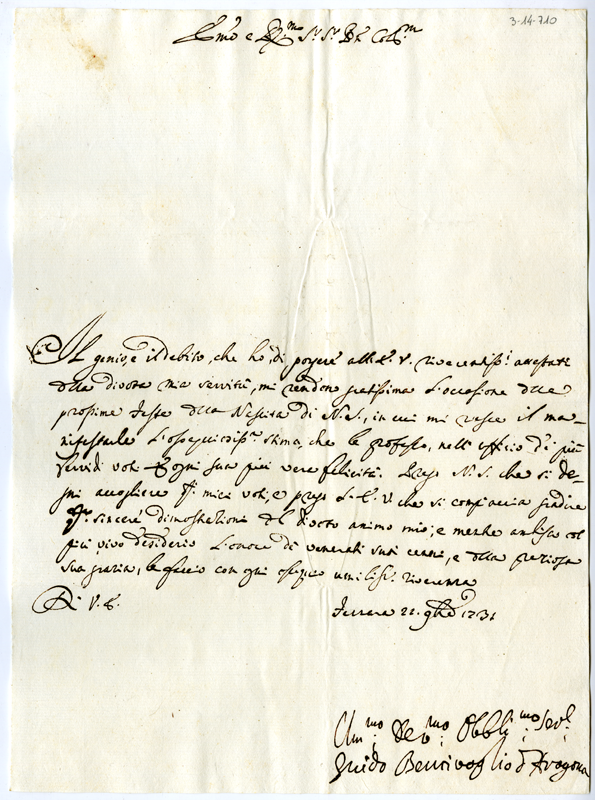 3-14-710
Emo e Rmo Sr. Sr. Pñe Colmo
Il genio, e il debito, che ho, di porgere all'E. V. riverentissi. attestati
della divota mia servitù, mi rendon gratissima l'occasione delle
prossime Feste della Nascita di N. S., in cui mi riesce il ma-
nifestarle l'ossequiosissma stima, che le professo, nell'ufficio di più
fervidi voti p ogni sua più vera felicità. Prego N. S. che si de-
gni accogliere qti miei voti, e prego l'E. V. che si compiaccia gradire
qte sincere dimostrazioni del divoto animo mio; e mentre ambisco col
più vivo desiderio l'onore di venerati suoi cenni, e della preziosa
sua grazia, le faccio con ogni ossequio umiliss. riverenza
Di V. E.
Ferrara 21. 9bre 1731
Ummo Devmo Obblmo Sevr
Guido Bentivoglio d'Aragona